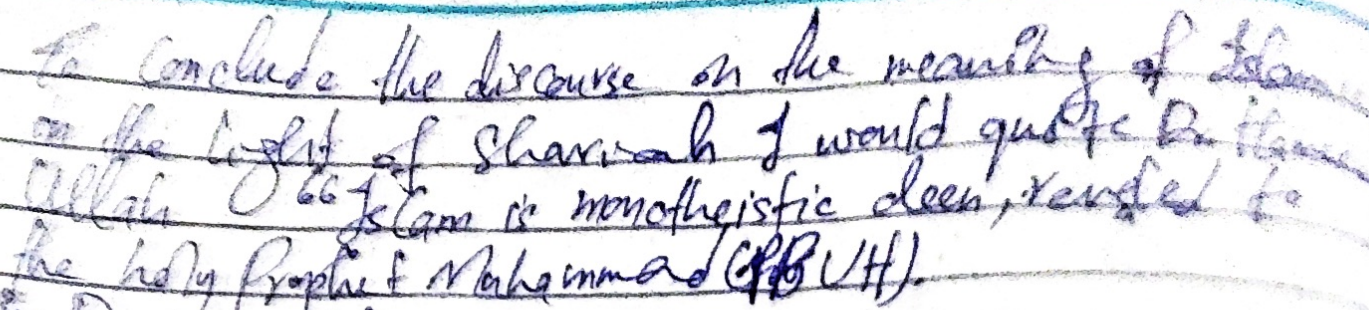 To conclude the discourse on the meaning of Islam
in the light of Shariah I would quote Dr. Ham
Ullah "Islam is monotheistic deen, reveled to
the holy Prophet Muhammad (PBUH).